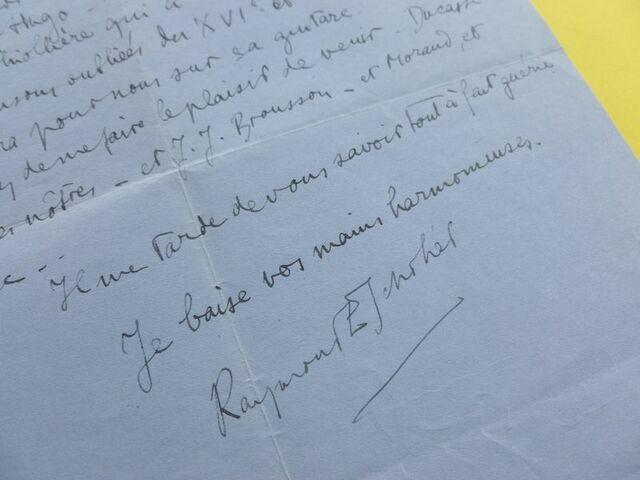 Hugo -
qui a
oubliées du XVIe et
pour nous sur sa guitare.
de me faire le plaisir de venir. Ducasse
nôtres - et J. J. Brousson - et Morand, et
Il me tarde de vous savoir tout à fait guérie.
Je baise vos mains harmonieuses.
Raymond Escholier